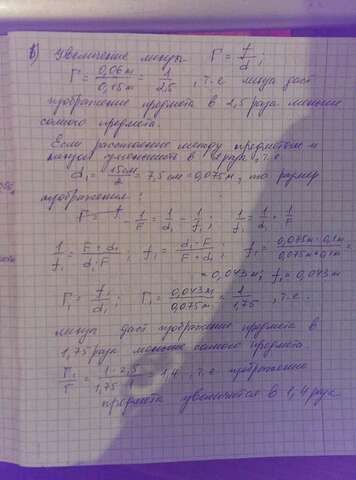 в) Увеличение линзы Г = f/d;
Г = 0,06м/0,15м = 1/2,5, т.е. линза даст
изображение предмета в 2,5 раза меньше
самого предмета.
Если расстояние между предметом и
линзой уменьшить в 2 раза, т.е.
d₁ = 15см/2 = 7,5 см = 0,075м, то размер
изображения:
1/F = 1/d₁ - 1/f₁; 1/f₁ = 1/d₁ + 1/F
1/f₁ = F + d₁/d₁·F; f₁ = d₁·F/F + d₁; f₁ = 0,075м·0,1м/0,075м+0,1м
= 0,043м; f₁ = 0,043м
Г₁ = f₁/d₁; Г₁ = 0,043м/0,075м = 1/1,75, т.е.
линза даст изображение предмета в
1,75 раза меньше самого предмета.
Г₁/Г = 1·2,5/1,75·1 = 1,4, т.е. изображение
предмета увеличится в 1,4 раза.